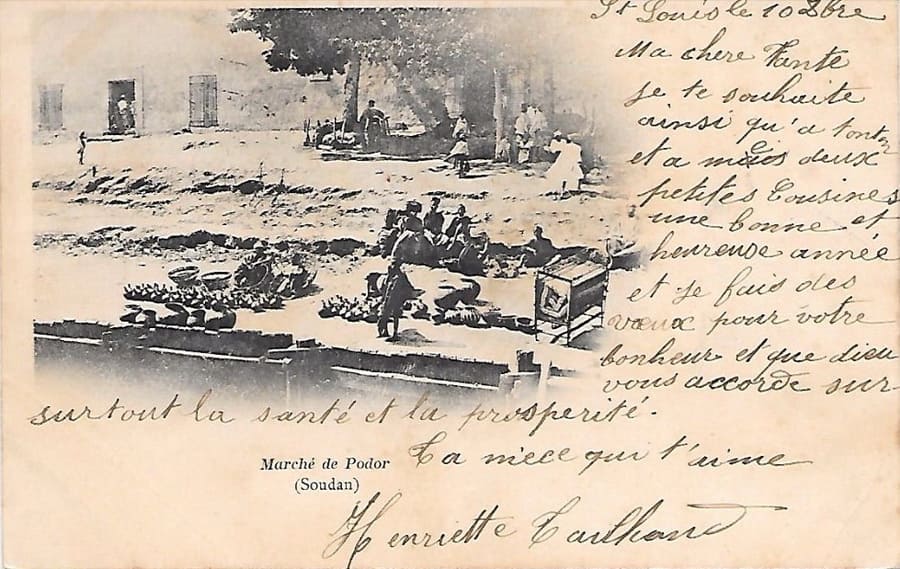 St Louis le 10 Xbre
Ma chere Tante
je te souhaite
ainsi qu'a tonton
et a mais deux
petites Cousines
une bonne et
heureuse année
et je fais des
vœux pour vôtre
bonheur et que dieu
vous accorde sur-
surtout la santé et la prosperité.
Ta niece qui t'aime
Henriette Tailhand
Marché de Podor
(Soudan)